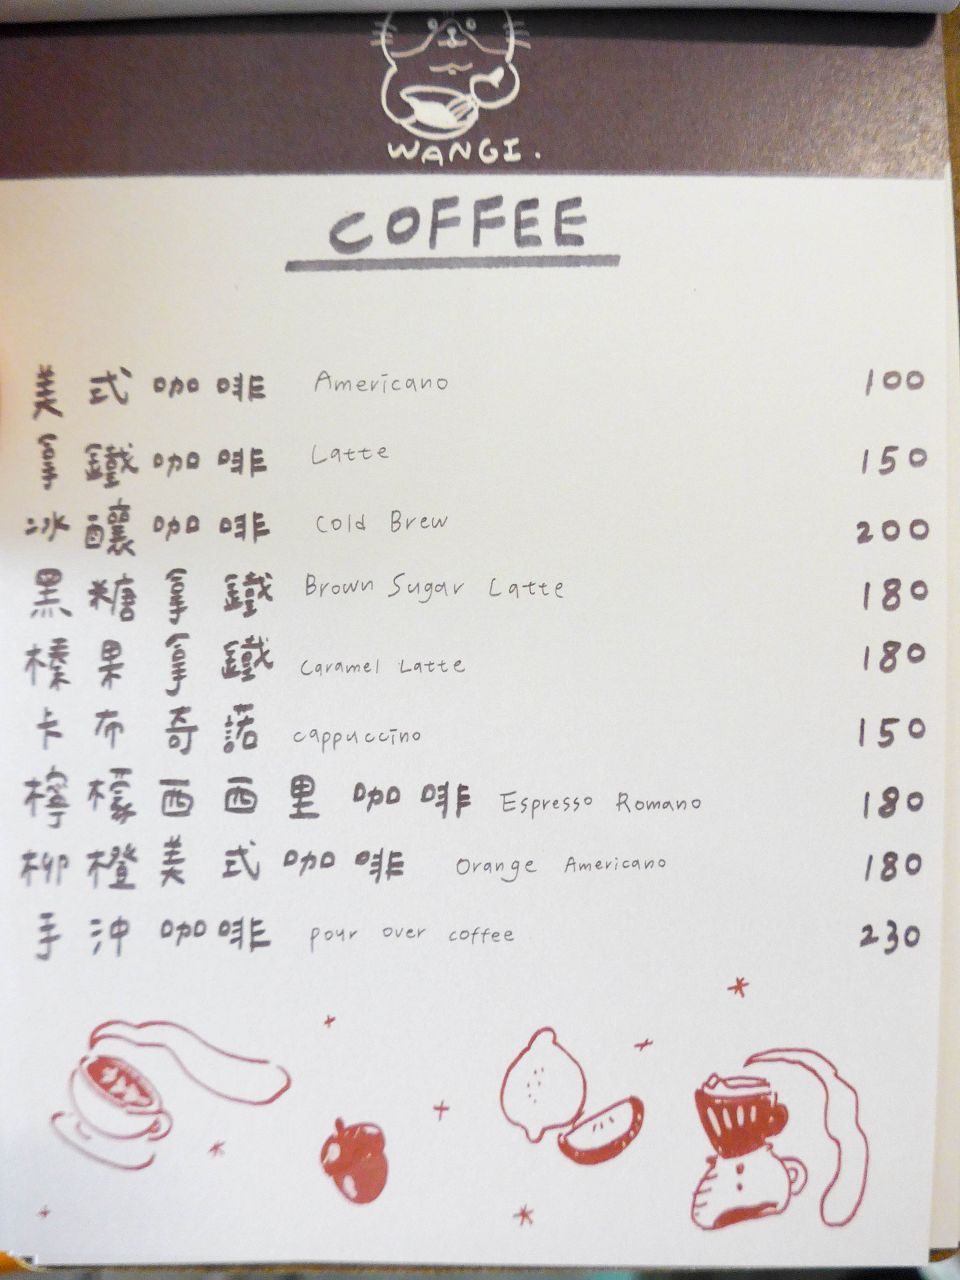 WANGI.
COFFEE
美式咖啡 Americano 100
拿鐵咖啡 Latte 150
冰釀咖啡 Cold Brew 200
黑糖拿鐵 Brown Sugar Latte 180
榛果拿鐵 Caramel Latte 180
卡布奇諾 cappuccino 150
檸檬西西里咖啡 Espresso Romano 180
柳橙美式咖啡 Orange Americano 180
手沖咖啡 pour over coffee 230